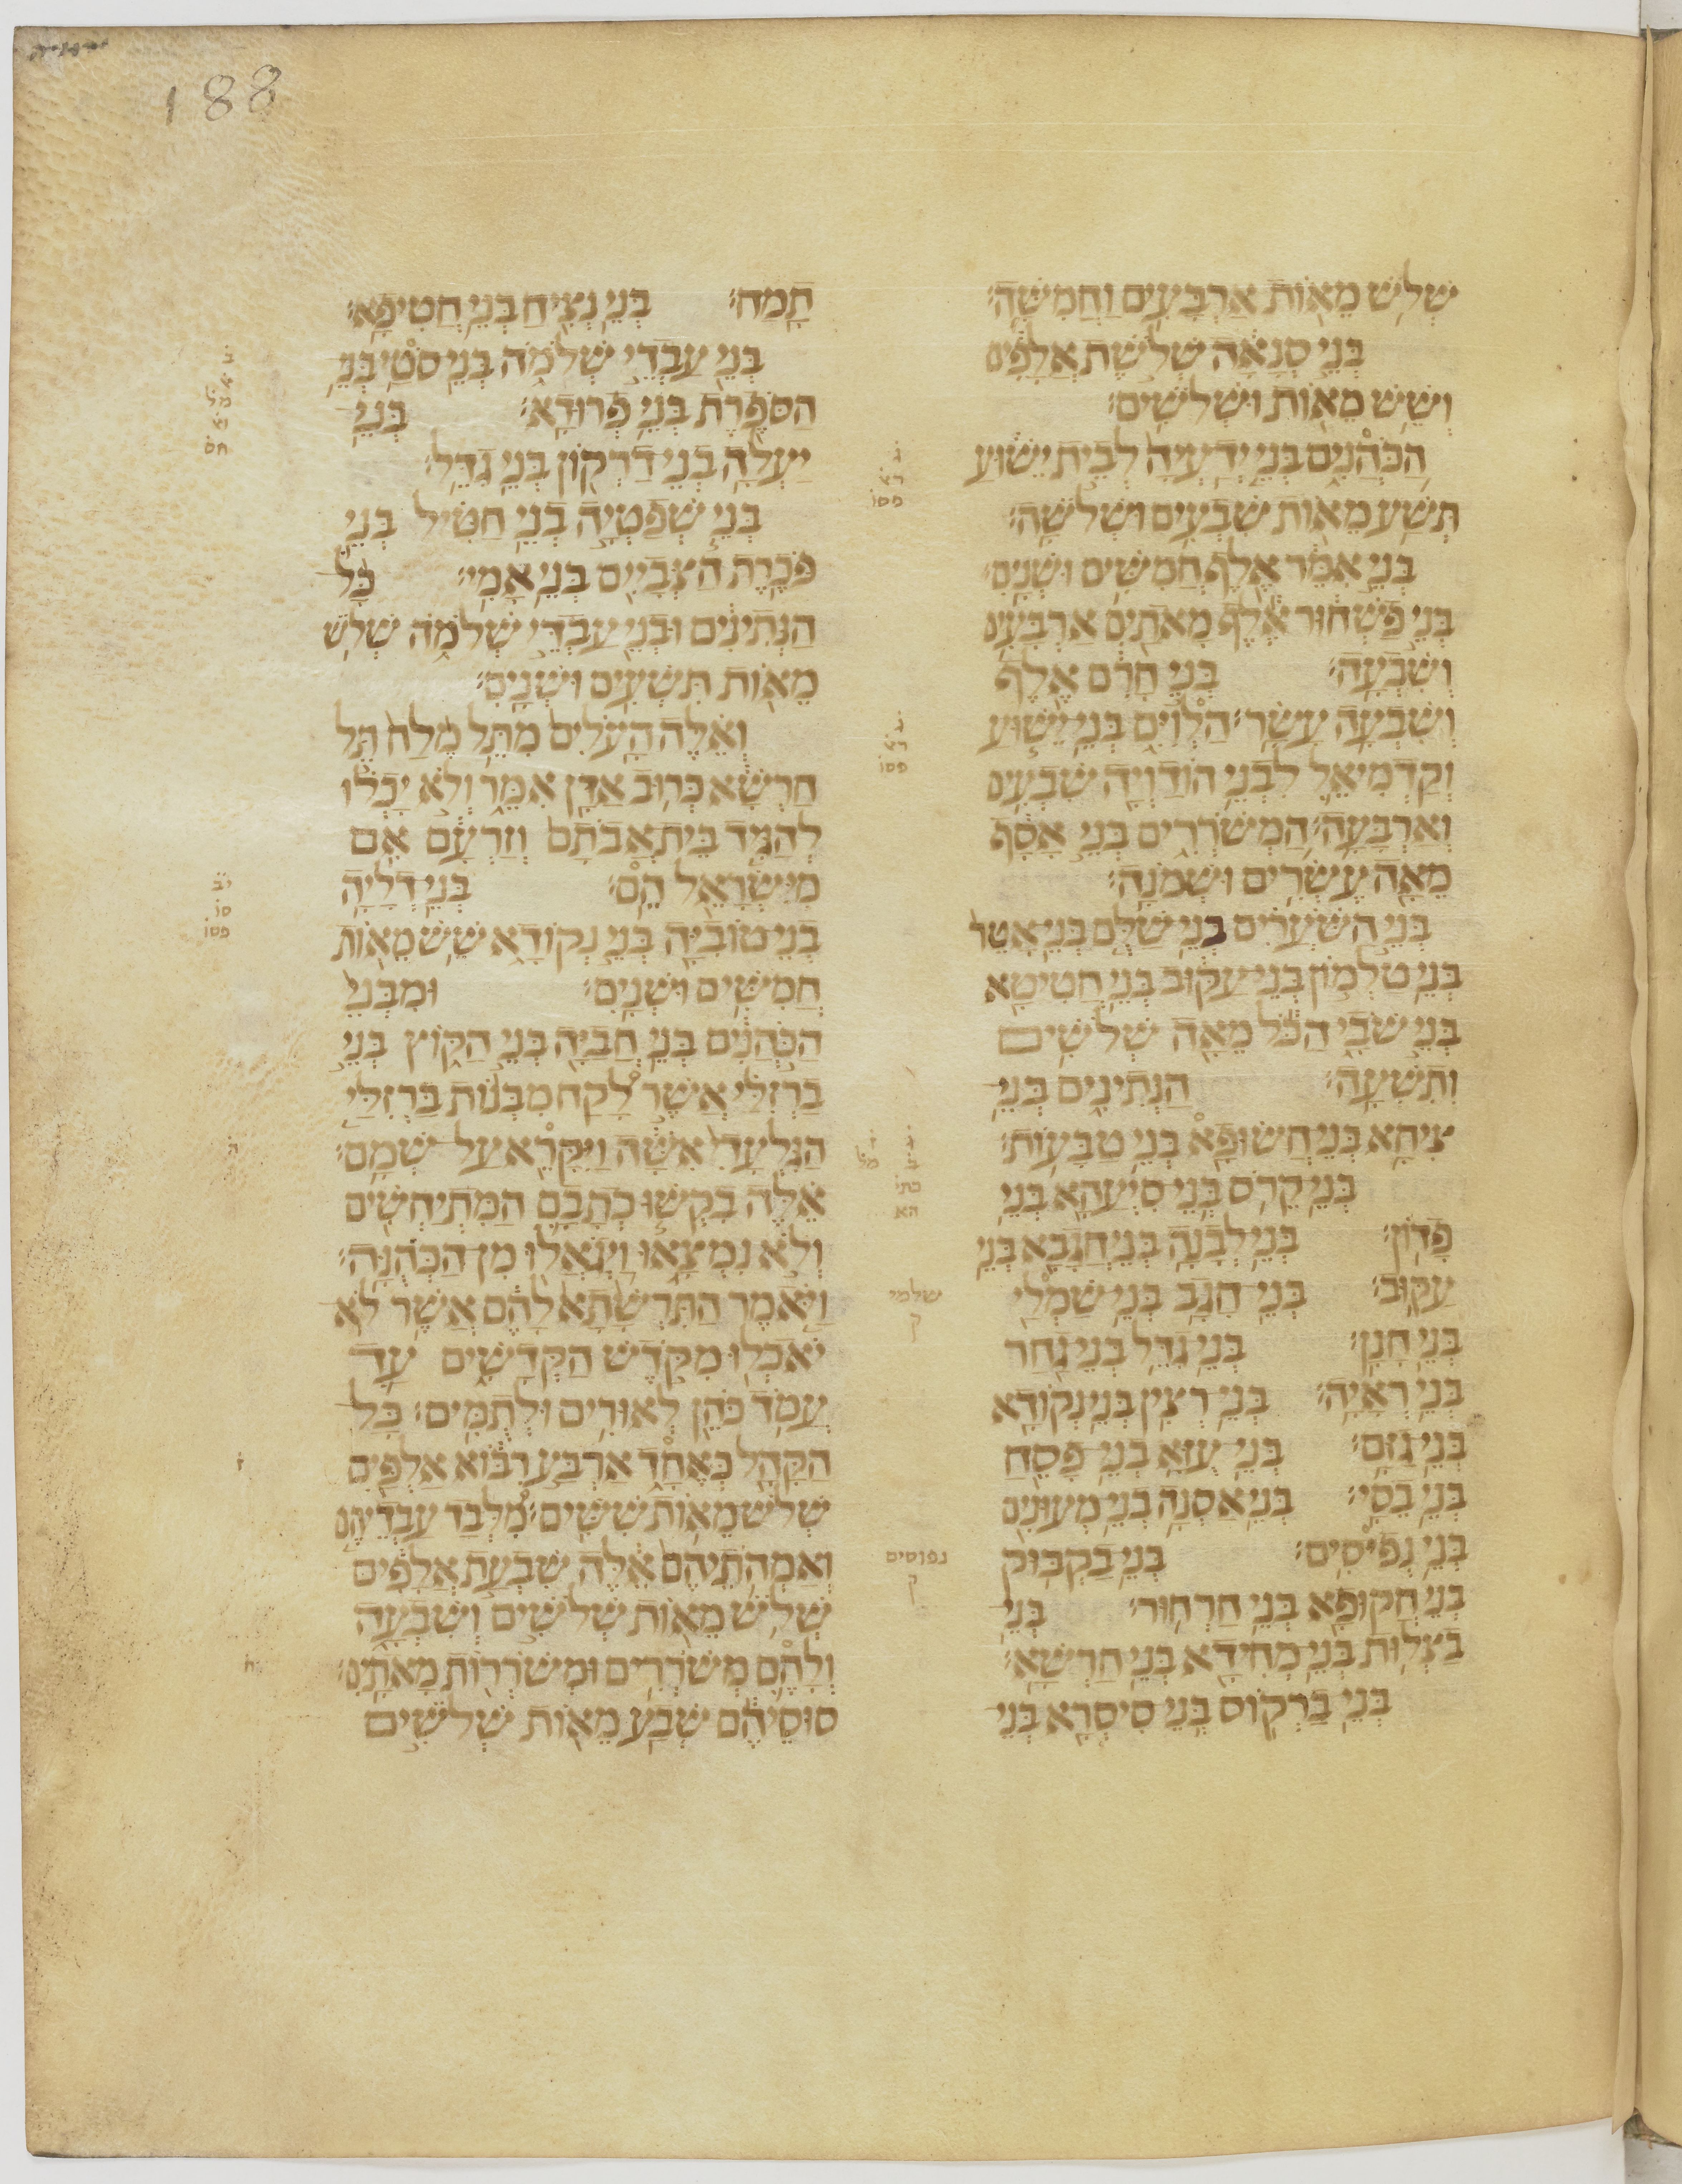 188
שלש מאות ארבעים וחמשה׃
בני סנאה שלשת אלפים
ושש מאות ושלשים׃
הכהנים בני ידעיה לבית ישוע
תשע מאות שבעים ושלשה׃
בני אמר אלף חמשים ושנים׃
בני פשחור אלף מאתים ארבעים
ושבעה׃ בני חרם אלף
ושבעה עשר׃ הלוים בני ישוע
וקדמיאל לבני הודויה שבעים
וארבעה׃ המשררים בני אסף
מאה עשרים ושמנה׃
בני השערים בני שלם בני אטר
בני טלמון בני עקוב בני חטיטא
בני שבי הכל מאה שלשים
ותשעה׃ הנתינים בני
ציחא בני חשופא בני טבעות׃
בני קרס בני סיעהא בני
פדון׃ בני לבנה בני חגבא בני
עקוב׃ בני חגב בני שמלי
בני חנן׃ בני גדל בני גחר
בני ראיה׃ בני רצין בני נקודא
בני גזם׃ בני עזא בני פסח
בני בסי׃ בני אסנה בני מעונים
בני נפיסים׃ בני בקבוק
בני חקופא בני חרחור׃ בני
בצלות בני מחידא בני חרשא׃
בני ברקוס בני סיסרא בני
שלמי
ק
נפוסים
ק
תמח׃ בני נציח בני חטיפא׃
בני עבדי שלמה בני סטי בני
הספרת בני פרודא׃ בני
יעלה בני דרקון בני גדל׃
בני שפטיה בני חטיל בני
פכרת הצביים בני אמי׃ כל
הנתינים ובני עבדי שלמה שלש
מאות תשעים ושנים׃
ואלה העלים מתל מלח תל
חרשא כרוב אדן אמר ולא יכלו
להגיד בית אבתם וזרעם אם
מישראל הם׃ בני דליה
בני טוביה בני נקודא שש מאות
חמשים ושנים׃ ומבני
הכהנים בני חביה בני הקוץ בני
ברזלי אשר לקח מבנות ברזלי
הגלעדי אשה ויקרא על שמם׃
אלה בקשו כתבם המתיחשים
ולא נמצאו ויגאלו מן הכהנה׃
ויאמר התרשתא להם אשר לא
יאכלו מקדש הקדשים עד
עמד כהן לאורים ולתמים׃ כל
הקהל כאחד ארבע רבוא אלפים
שלש מאות ששים׃ מלבד עבדיהם
ואמהתיהם אלה שבעת אלפים
שלש מאות שלשים ושבעה
ולהם משררים ומשררות מאתים׃
סוסיהם שבע מאות שלשים